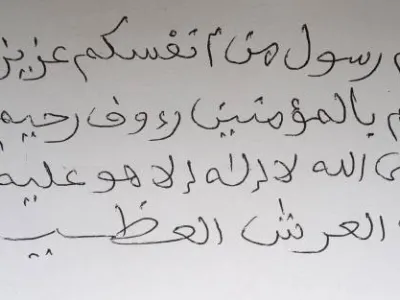 م رسول من أنفسكم عزيز
م بالمؤمنين رءوف رحيم
ى الله لا إله إلا هو عليه
العرش العظيـ